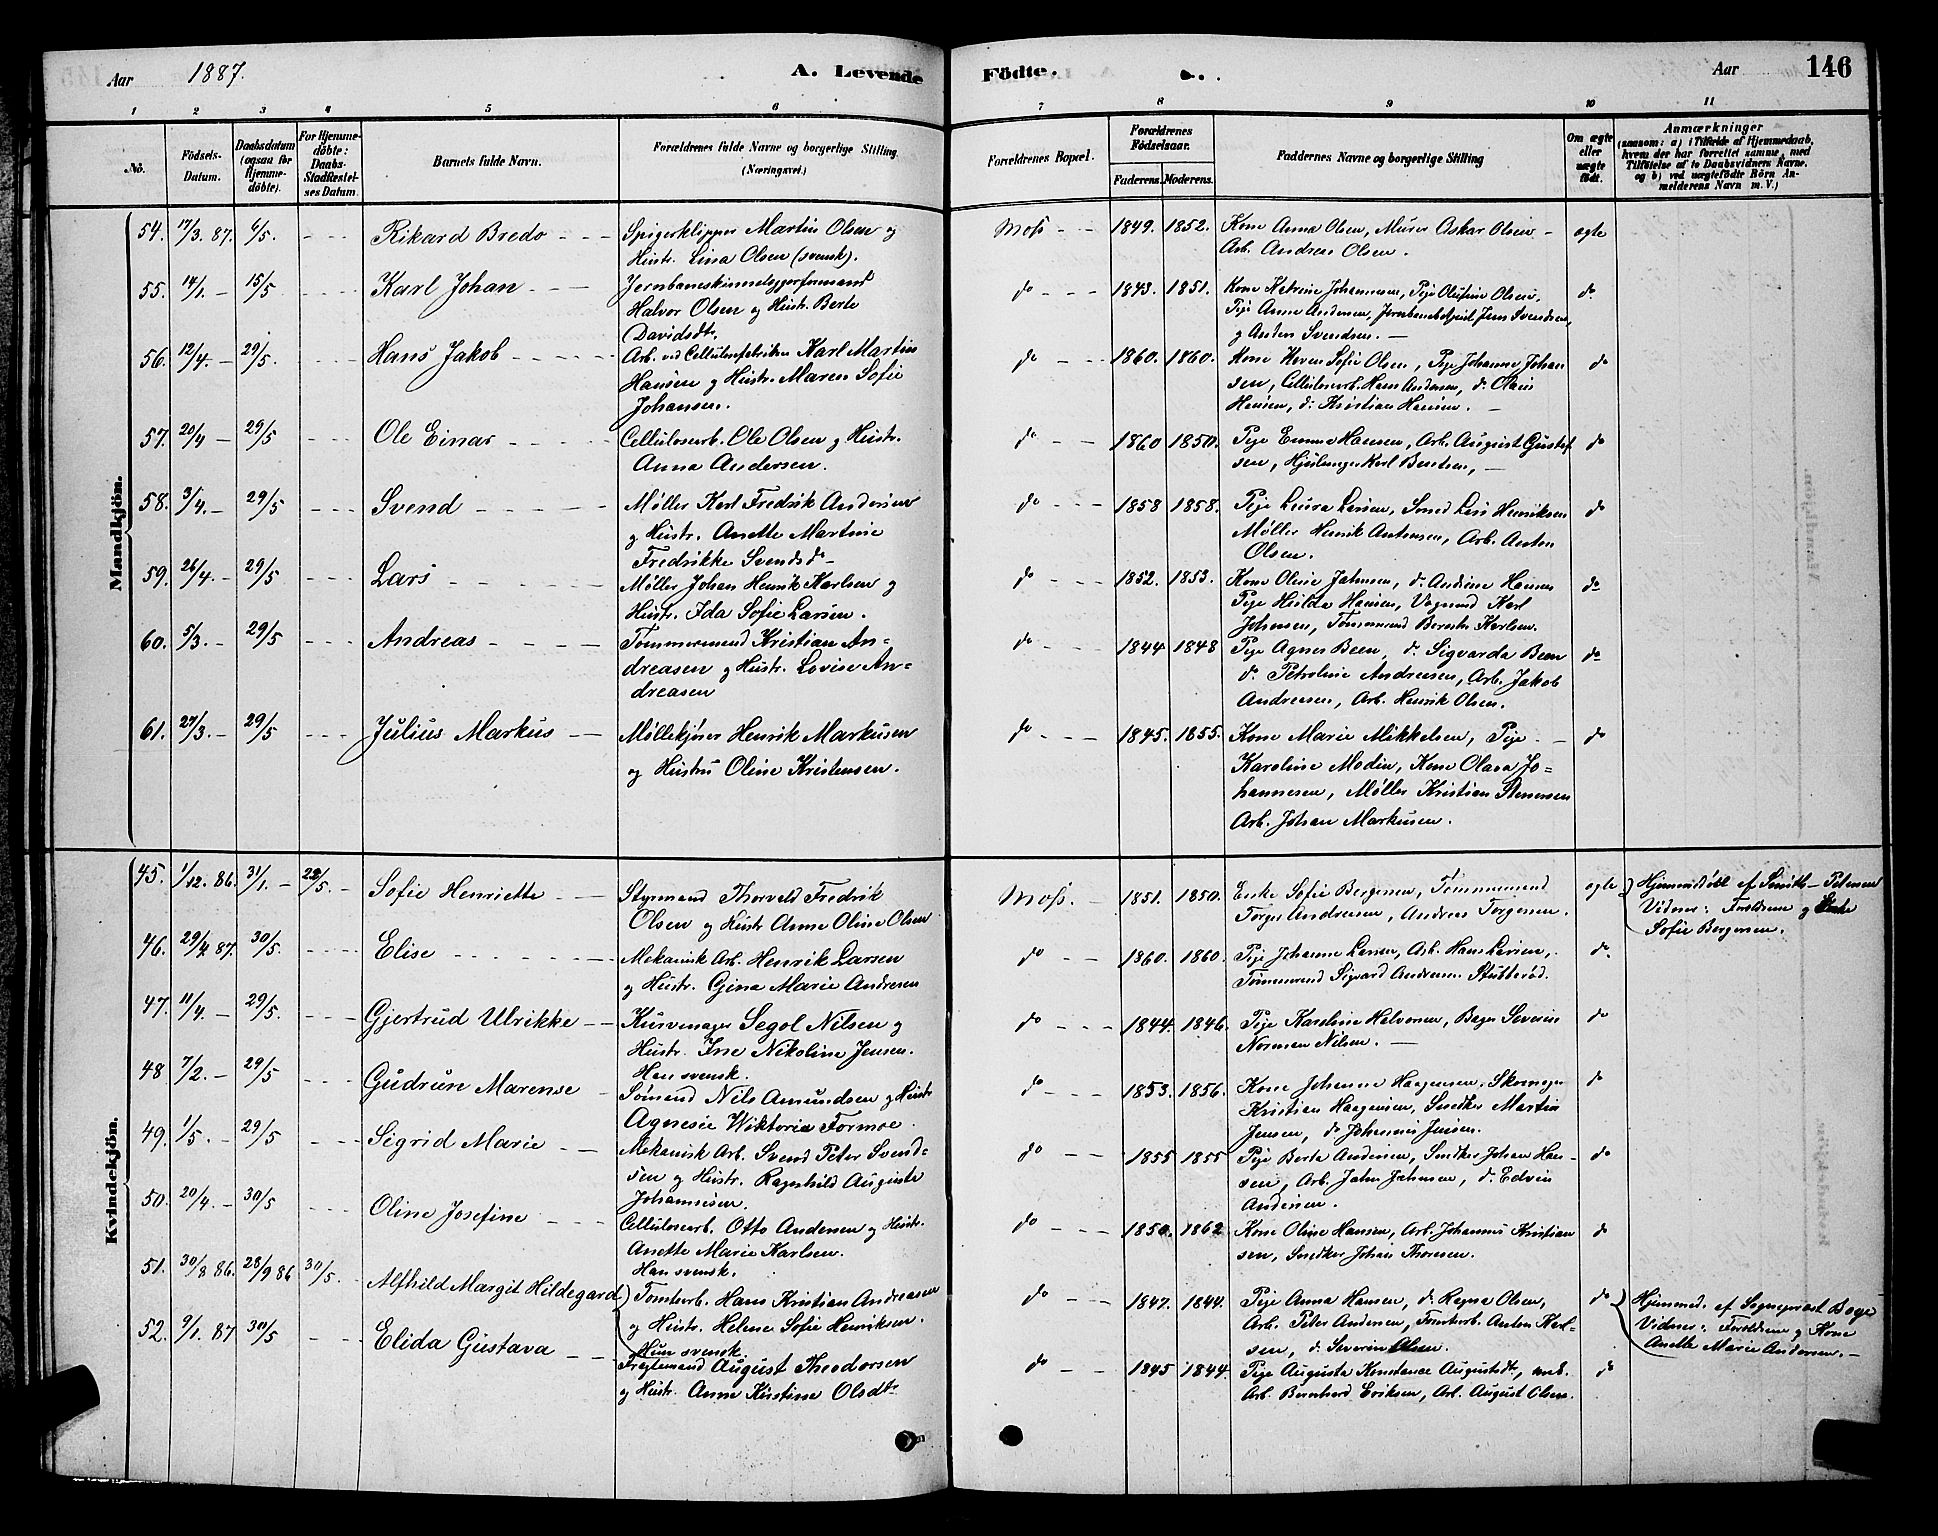 Aar 1887. A. Levende Födte. Aar 146
1 2 3 4 5 6 7 8 9 10 11
No. Födsels-Datum. Daabsdatum (ogsaa for Hjemmedöbte). For Hjemmedöbte: Daabs-Stadfæstelses Datum. Barnets fulde Navn. Forældrenes fulde Navne og borgerlige Stilling (Næringsvei.) Forældrenes Bopæl. Forældrenes Födselsaar. Faderens. Moderens. Faddernes Navne og borgerlige Stilling Om ægte eller uægte födt. Anmærkninger (saasom: a) i Tilfælde af Hjemmedaab, hvem der har forrettet samme, med Tilföielse af to Daabsvidners Navne, og b) ved uægtefödte Börn Anmelderens Navn m. V.)
Mandkjön.
54. 17/3. 87. 6/5. Rikard Bredo Spigerklipper Martin Olsen og Moss 1849. 1852. Kone Anna Olsen, Murer Oskar Olsen ægte
Hustr. Lina Olsen (svensk). Arb. Andreas Olsen.
55. 14/1. 15/5 Karl Johan Jernbaneskinnelæggerformand do 1843. 1851. Kone Katrine Johannesen, Pige Olufine Olsen, do
Halvor Olsen og Hustr. Berte Pige Anne Andersen, Jernbanebetjent Jens Svendsen,
Davidsdtr. og Anders Svendsen.
56. 12/4. 29/5. Hans Jakob Arb. ved Cellulosefabriken Karl Martin do 1860. 1860. Kone Karen Sofie Olsen, Pige Johanne Johan do
Hansen og Hustr. Maren Sofie sen, Cellulosearb. Hans Andersen, do Olaus
Johansen. Hansen, do Kristian Hansen.
57. 20/4 29/5 Ole Einar Cellulosearb. Ole Olsen og Hustr. do 1860 1850. Pige Emma Hansen, Arb. August Gustaf do
Anna Andersen. sen, Karl Bentsen,
58. 3/4. 29/5 Svend Møller Karl Fredrik Andersen do 1858 1858. Pige Laura Larsen, Lars Henriksen do
og Hustr. Anette Martine Møller Henrik Antonsen, Arb. Anton
Fredrikke Svendsd Olsen.
59. 26/4. 29/5 Lars Møller Johan Henrik Karlsen og do 1852. 1853. Kone Oline Jahnsen, do Andrine Hansen do
Hustr. Ida Sofie Larsen. Pige Hilda Hansen, Vognmand Karl
Johnsen, Tømmermand Karlsen.
60. 5/3. 29/5 Andreas Tømmermand Kristian An- do 1844 1848 Pige Agnes Been, do Sigvarda Been do
dreasen og Hustr. Lovise An- do Petroline Andreasen, Arb. Jakob
dreasen Andreasen, Arb. Henrik Olsen.
61. 27/3. 29/5 Julius Markus Møllekjører Henrik Markusen do 1845. 1855. Kone Marie Mikkelsen, Pige do
og Hustru Oline Kristensen. Karoline Modin, Kone Olava Jo-
hannesen, Møller Kristian Stenersen
Arb. Johan Markusen.
Kvindekjön.
45. 1/12. 86. 31/1. 22/5. Sofie Henriette Styrmand Thorvald Fredrik Moss. 1851. 1850. Enke Sofie Bergersen, Tømmermand ægte Hjemmedøbt af Smith-Petersen
Olsen og Hustr Anne Oline Olsen Torger Andreasen, Andreas Torgersen. Vidner: Forældrene og Enke
Sofie Bergersen.
46. 29/4 87. 30/5. Elise Mekanisk Arb. Henrik Larsen do 1860. 1860. Pige Johanne Larsen, Arb. Hans Larsen, do
og Hustr. Gina Marie Andresen Tømmermand Sigvard Andresen Stubberød.
47. 11/4. 29/5. Gjertrud Ulrikke Kurvemager Segol Nilsen og do 1844. 1846. Pige Karoline Halvorsen, Bager Severin do
Hustr. Ine Nikoline Jensen. Norman Nilsen.
Han svensk.
48. 7/2. 29/5 Gudrun Marense Sømand Nils Amundsen og Hustr do 1853. 1856. Kone Johanne Haagensen, Skomager do
Agnesie Wiktoria Formoe. Kristian Haagensen, Snedker Martin
Jensen, do Johannes Jensen.
49. 1/5. 29/5 Sigrid Marie Mekanisk Arb. Svend Peter Svend- do 1855 1855 Pige Berta Andersen, Snedker Johan Han- do
sen og Hustr. Ragnhild Auguste sen, Arb. Jahn Jahnsen, do Edvin
Johannesen. Andersen.
50. 20/4. 30/5 Oline Josefine Cellulosearb. Otto Andersen og Hustr. do 1850. 1862 Kone Oline Hansen, Arb. Johannes Kristian do
Anette Marie Karlsen. sen, Snedker Johan Thoresen.
Han svensk.
51. 30/8 86. 28/9 86 30/5. Alfhild Margit Hildegard Tomtearb. Hans Kristian Andreasen do 1847. 1844. Pige Anna Hansen, do Ragna Olsen, do Hjemmed. af Sogneprest Boye
og Hustr. Helene Sofie Henriksen. Arb. Peter Andersen, Tomtearb. Anton Karl- Vidner: Forældrene og Kone
Hun svensk. sen, do Severin Olsen. Anette Marie Andersen.
52. 9/1. 87 30/5 Elida Gustava Fragtemand August Theodorsen do 1845 1844 Pige Augusta Konstance Augustsdtr, mek. do
og Hustr. Anne Kirstine Olsdtr Arb. Bernhard Eriksen, Arb. August Olsen.